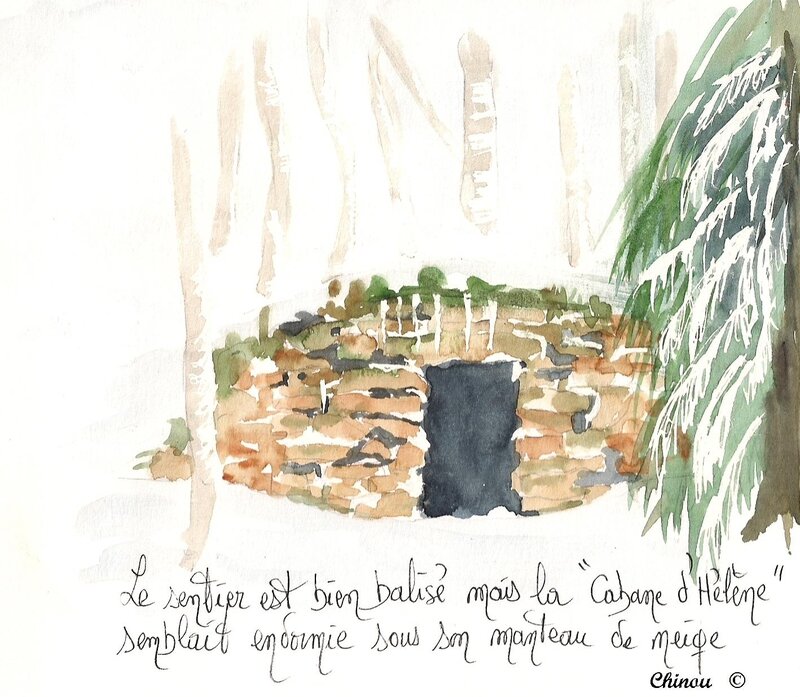 Le sentier est bien balisé mais la "Cabane d'Hélène"
semblait endormie sous son manteau de neige
Chinou ©